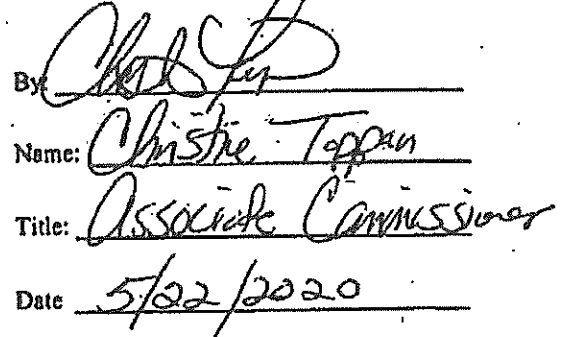 By:
Name: Christine Tappan
Title: Associate Commissioner
Date 5/22/2020